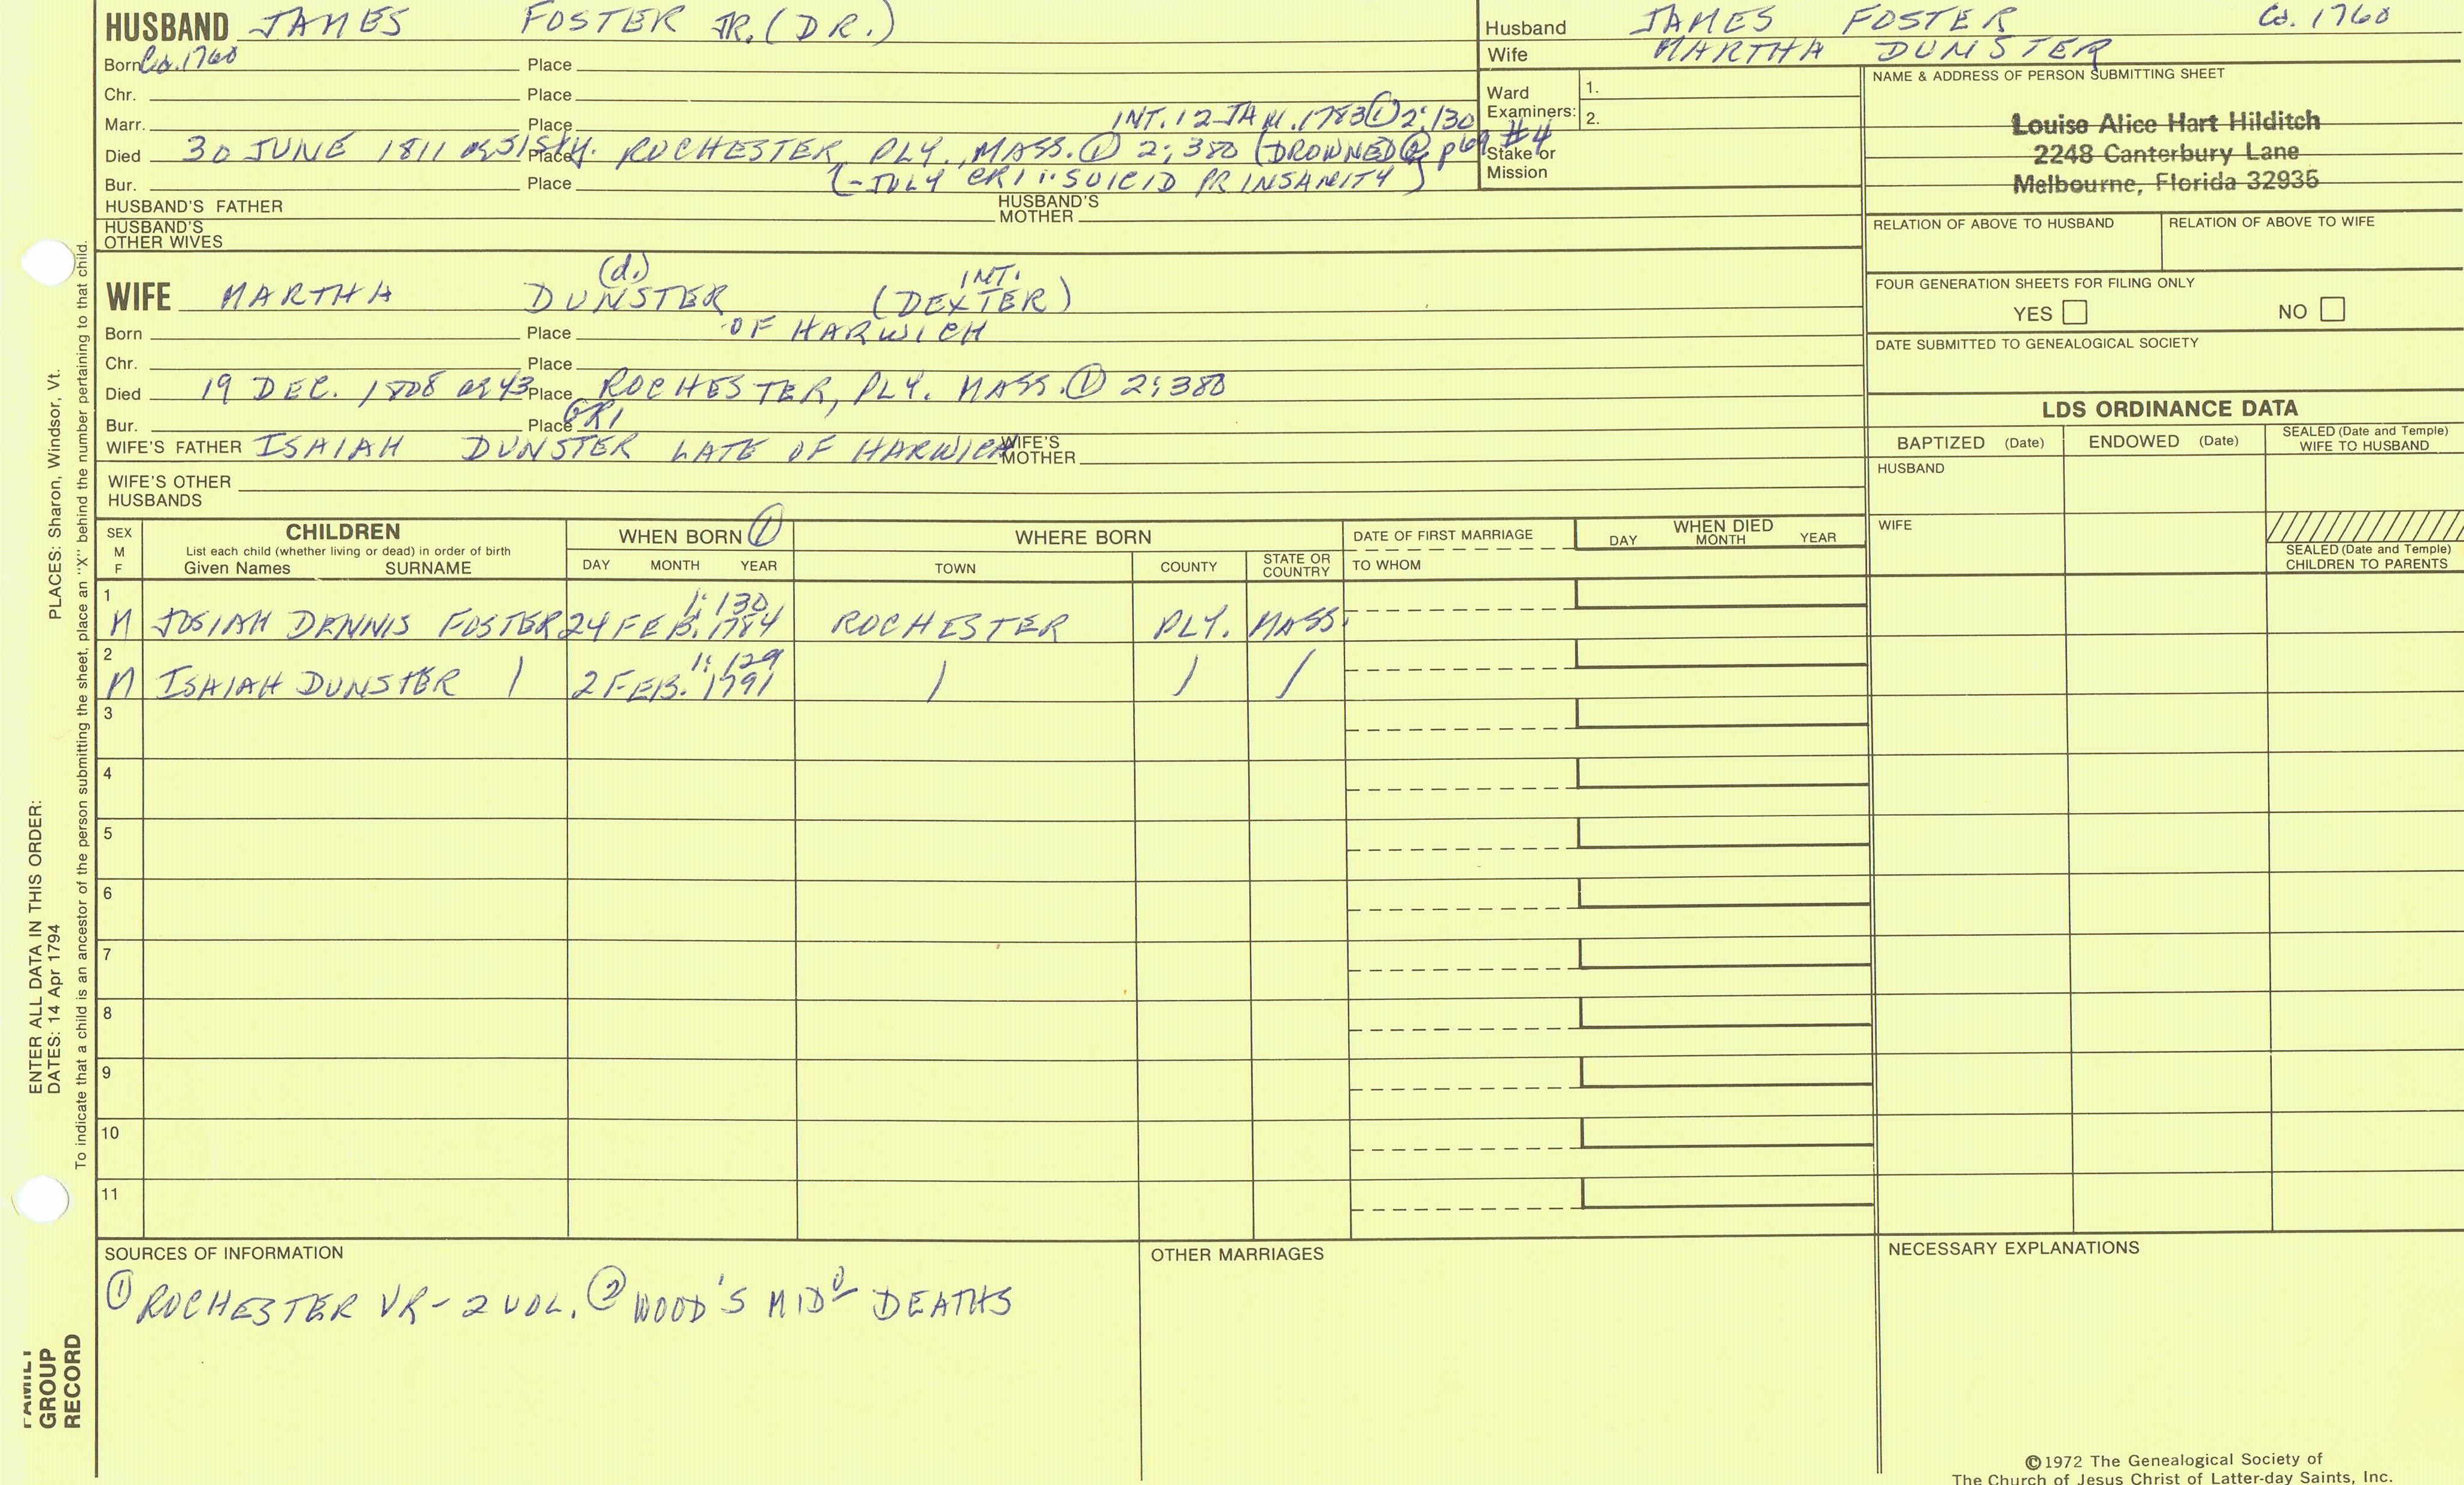 HUSBAND JAMES FOSTER JR. (DR.)
Born Ca. 1760 Place
Chr. Place
Marr. Place INT. 12 JAN. 1783 ① 2:130
Died 30 JUNE 1811 Place ROCHESTER, PLY., MASS. ① 2:380 (DROWNED ② p69 #4
Bur. Place (-JULY GR1 : SUICID PR INSANITY)
HUSBAND'S FATHER HUSBAND'S MOTHER
HUSBAND'S OTHER WIVES
Husband JAMES FOSTER Ca. 1760
Wife MARTHA DUNSTER
Ward Examiners: 1.
2.
Stake or Mission
NAME & ADDRESS OF PERSON SUBMITTING SHEET
Louise Alice Hart Hilditch
2248 Canterbury Lane
Melbourne, Florida 32935
RELATION OF ABOVE TO HUSBAND RELATION OF ABOVE TO WIFE
FOUR GENERATION SHEETS FOR FILING ONLY
YES NO
DATE SUBMITTED TO GENEALOGICAL SOCIETY
(d.) INT.
WIFE MARTHA DUNSTER (DEXTER)
Born Place OF HARWICH
Chr. Place
Died 19 DEC. 1808 ae 43 Place ROCHESTER, PLY. MASS. ① 2:380
Bur. Place GR1
WIFE'S FATHER ISAIAH DUNSTER LATE OF HARWICH WIFE'S MOTHER
WIFE'S OTHER HUSBANDS
LDS ORDINANCE DATA
BAPTIZED (Date) ENDOWED (Date) SEALED (Date and Temple) WIFE TO HUSBAND
HUSBAND
WIFE
SEALED (Date and Temple) CHILDREN TO PARENTS
SEX M F CHILDREN WHEN BORN ① WHERE BORN DATE OF FIRST MARRIAGE WHEN DIED
List each child (whether living or dead) in order of birth
Given Names SURNAME DAY MONTH YEAR TOWN COUNTY STATE OR COUNTRY TO WHOM DAY MONTH YEAR
1 1:130
M JOSIAH DENNIS FOSTER 24 FEB. 1784 ROCHESTER PLY. MASS.
2 1:129
M ISAIAH DUNSTER / 2 FEB. 1791 / / /
3
4
5
6
7
8
9
10
11
SOURCES OF INFORMATION
① ROCHESTER VR - 2 VOL. ② WOOD'S MIDD DEATHS
OTHER MARRIAGES
NECESSARY EXPLANATIONS
©1972 The Genealogical Society of
The Church of Jesus Christ of Latter-day Saints, Inc.
PLACES: Sharon, Windsor, Vt.
ENTER ALL DATA IN THIS ORDER:
DATES: 14 Apr 1794
To indicate that a child is an ancestor of the person submitting the sheet, place an "X" behind the number pertaining to that child.
FAMILY
GROUP
RECORD